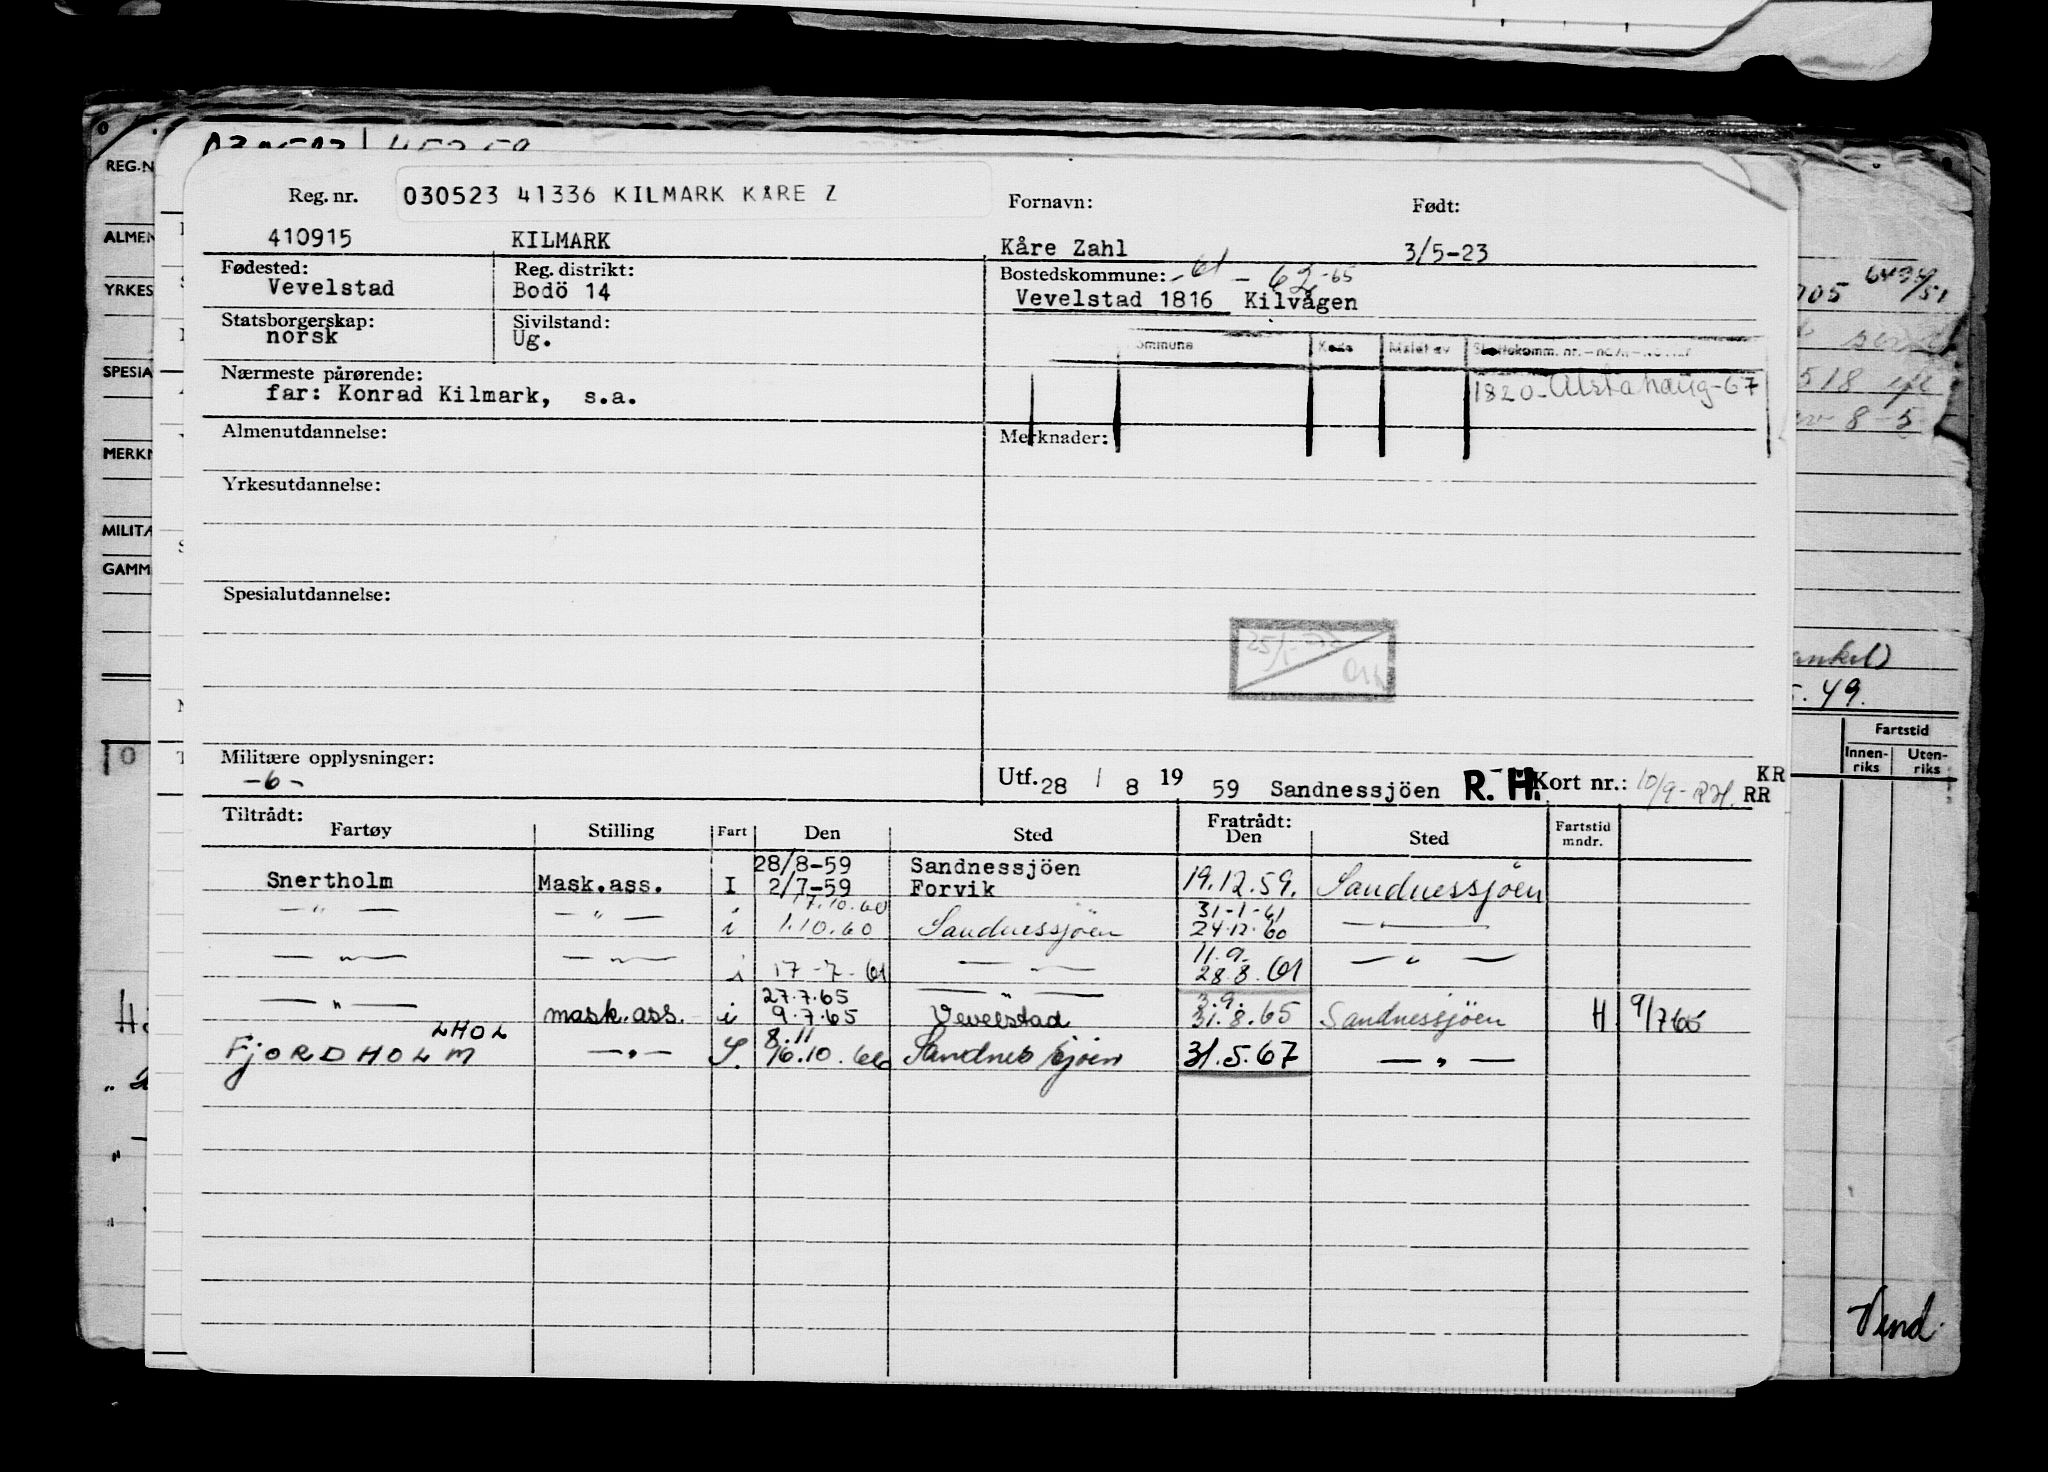 Reg. nr. 030523 41336 KILMARK KÅRE Z Fornavn: Født:
410915 KILMARK Kåre Zahl 3/5-23
Fødested: Reg. distrikt: Bostedskommune: -61 - 62 -65
Vevelstad Bodö 14 Vevelstad 1816 Kilvågen
Statsborgerskap: Sivilstand:
norsk Ug.
Nærmeste pårørende: 1820-Alstahaug-67
far: Konrad Kilmark, s.a.
Almenutdannelse: Merknader:
Yrkesutdannelse:
Spesialutdannelse:
Militære opplysninger:
-6-
Utf. 28 / 8 19 59 Sandnessjöen R. H. Kort nr.: 10/9- RH. KR
RR
Tiltrådt: Fratrådt:
Fartøy Stilling Fart Den Sted Den Sted Fartstid
mndr.
28/8-59 Sandnessjöen
Snertholm Mask.ass. I 2/7-59 Forvik 19.12.59. Sandnessjöen
7.10.60 31-1-61
— " — — " — i 1.10.60 Sandnessjöen 24.12.60 — " —
11.9.
— " — — " — i 17-7-61 — " — 28.8.61 — " —
27.7.65 — " — 3.9.
— " — mask.ass. i 9.7.65 Vevelstad 31.8.65 Sandnessjöen H 9/765
LHOL 8.11
FjORDHOLM — " — S. 16.10.66 Sandnessjöen 31.5.67 — " —
REG.N
ALMEN
YRKES
SPESIA
MERKN
MILITA
GAMM
5.49.
Fartstid
Innen-
riks
Uten-
riks
Vend